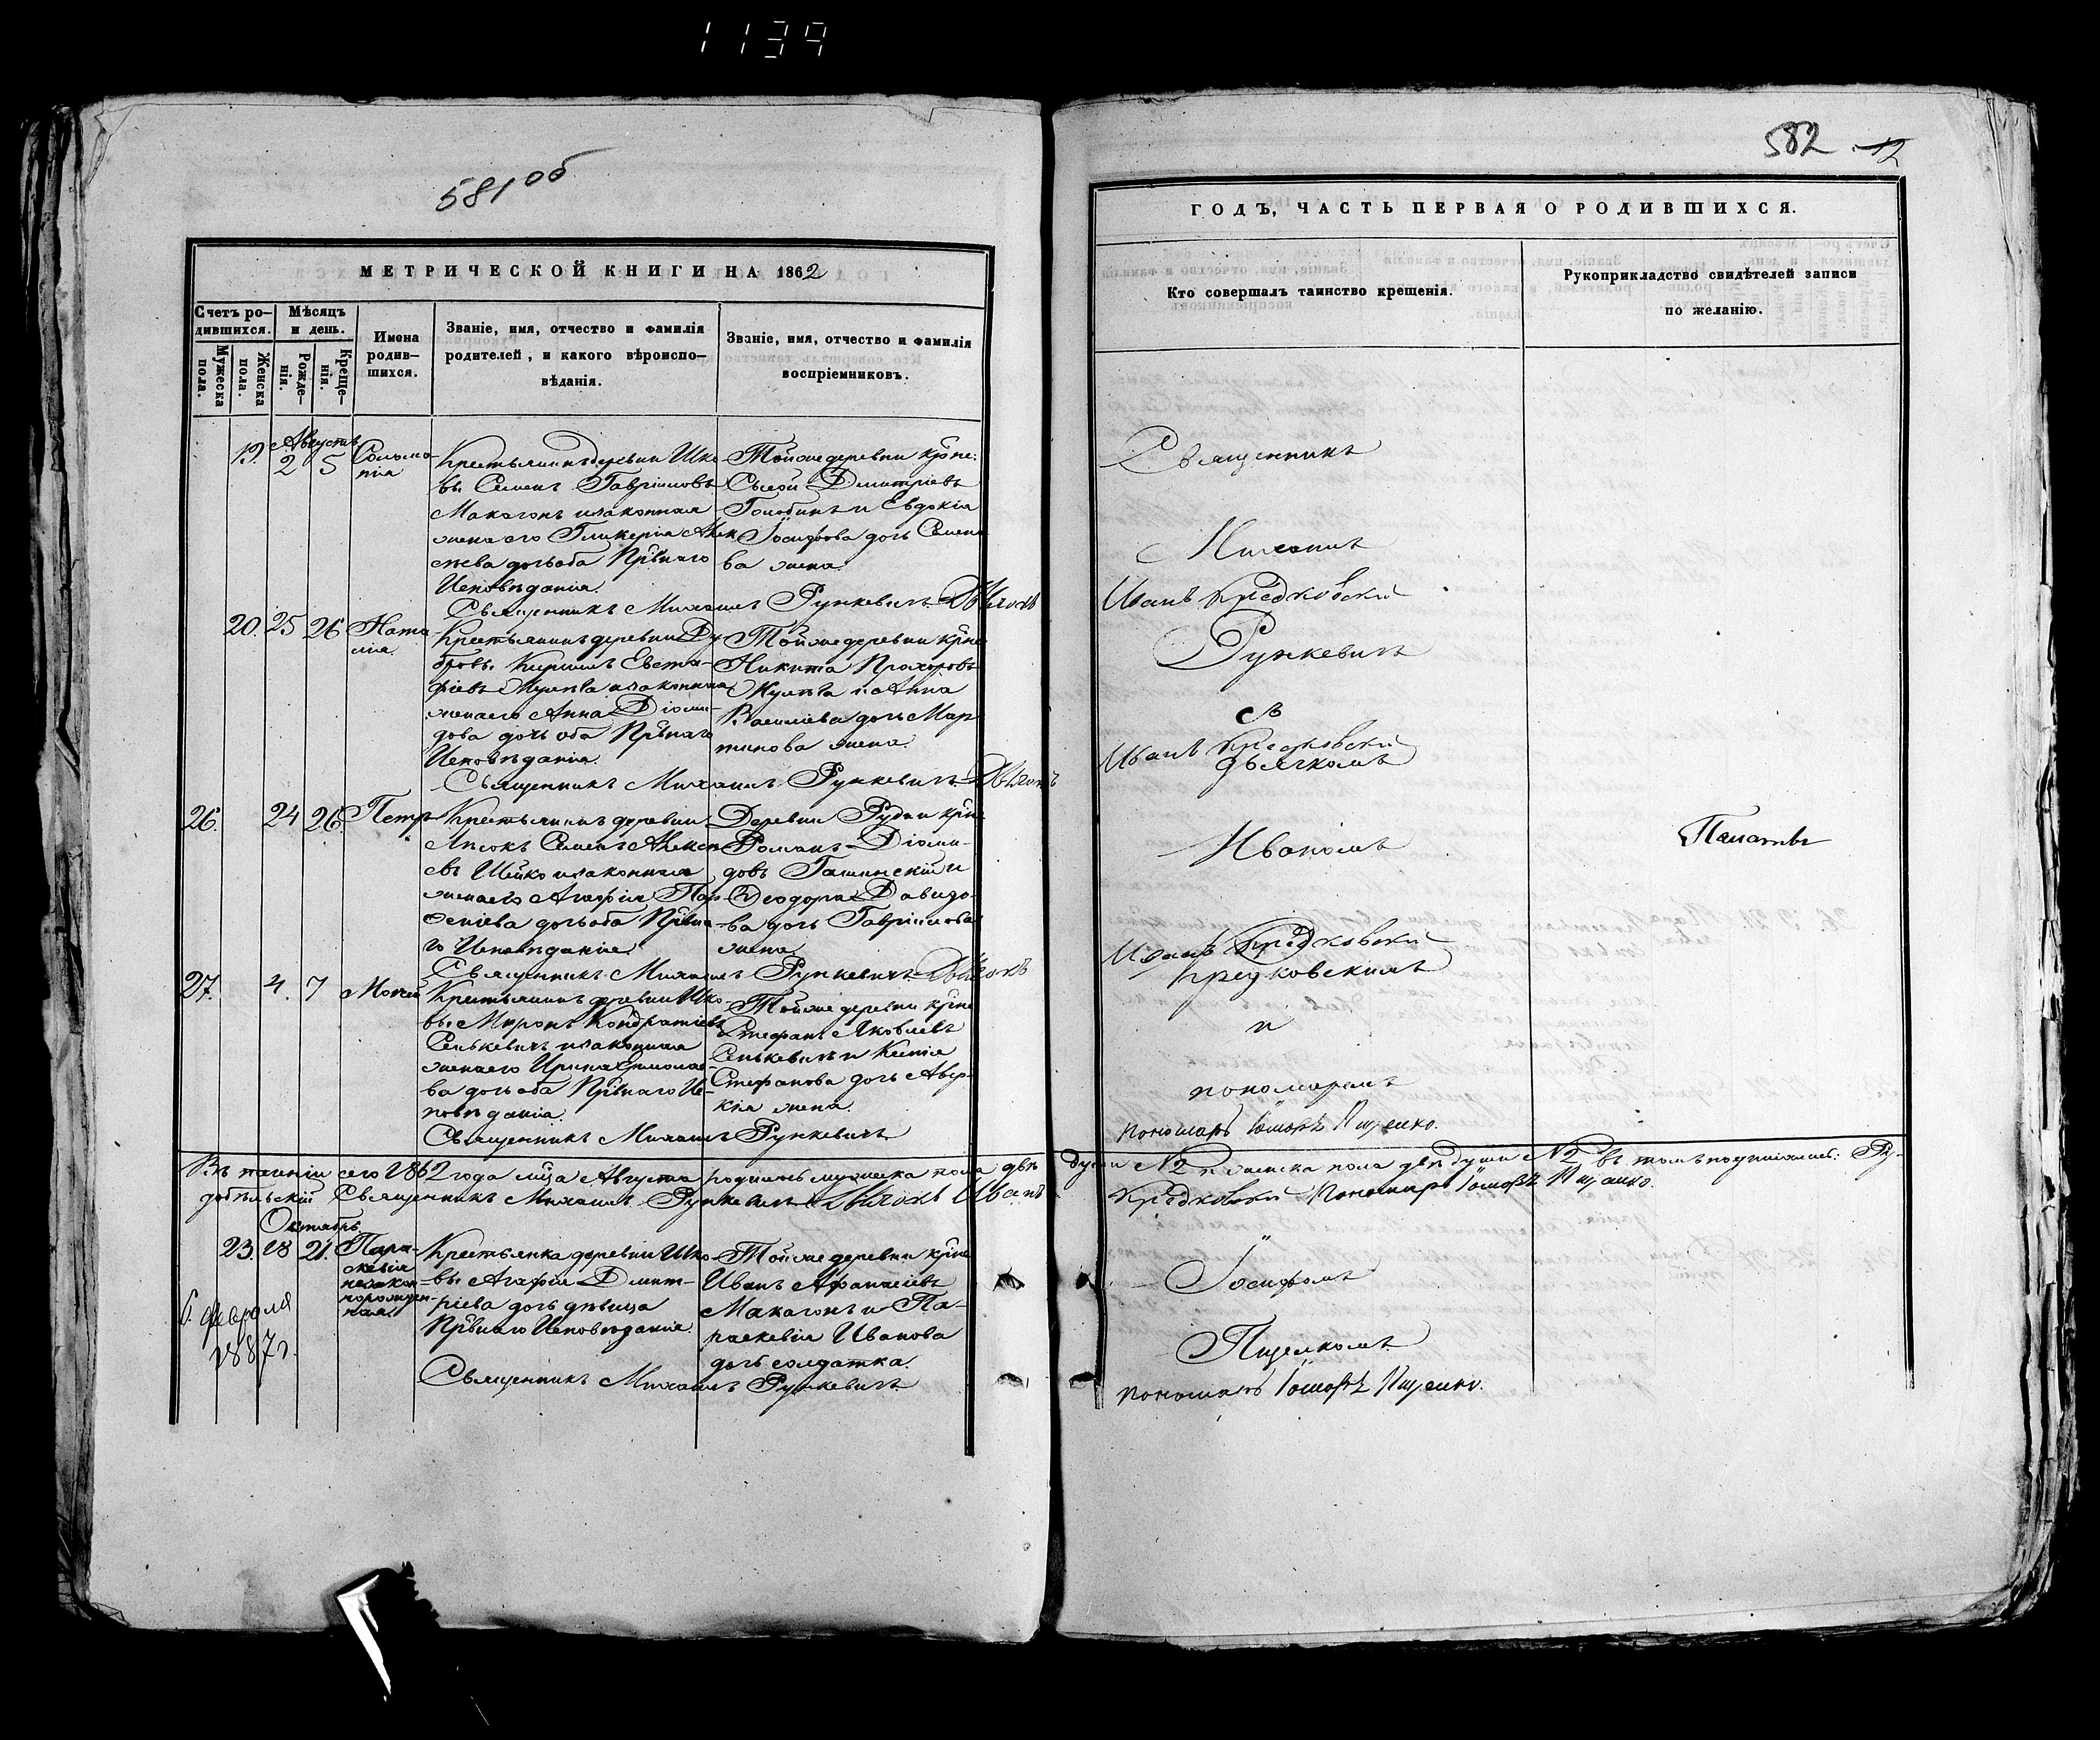 1139
581 об
МЕТРИЧЕСКОЙ КНИГИ НА 1862
Счетъ ро-
дившихся.
Мѣсяцъ
и день.
Мужеска
пола.
Женска
пола.
Рожде-
нія.
Креще-
нія.
Имена
родив-
шихся.
Званіе, имя, отчество и фамилія
родителей, и какого вѣроиспо-
вѣданія.
Званіе, имя, отчество и фамилія
воспріемниковъ.
Августъ
19. 2 5
Соломо-
нія
Крестьянинъ деревни Шко-
вы Семенъ Гавріиловъ
Макагонъ и законная
жена его Гликерія Алек
сѣева дочь оба Прⷡ҇наго
Исповѣданія.
Тойже деревни крⷭ҇не
Сысой Дмитріевъ
Голобинъ и Евдокія
Іосифова дочь Семено
ва жена.
Священникъ Михаилъ Рункевичъ Дьячокъ
20. 25 26
Ната
лія.
Крестьянинъ деревни Ду
бровы Кириллъ Евста-
фіевъ Жулѣва и законная
жена его Анна Діоми-
дова дочь оба Прⷡ҇наго
Исповѣданія.
Тойже деревни крⷭ҇не
Никита Прохоровъ
Жулѣва и Анна
Василіева дочь Мар-
тинова жена.
Священникъ Михаилъ Рункевичъ Дьячокъ
26. 24 26
Петръ
Крестьянинъ деревни
Лисокъ Семенъ Алексѣ
евъ Шейко и законная
жена его Агафія Пар-
ѳеніева дочь оба Прⷡ҇на
го Исповѣданія
Деревни Рудни крⷭ҇не
Романъ Діоми-
довъ Гашинскій и
Ѳеодора Давидо-
ва дочь Гавріилова
жена
Священникъ Михаилъ Рункевичъ Дьячокъ
27. 4. 7
Моисей
Крестьянинъ деревни Шко-
вы Миронъ Кондратіевъ
Сенькевичъ и законная
жена его Ирина Ермолае-
ва дочь оба Прⷡ҇наго Ис-
повѣданія.
Тойже деревни крⷭ҇не
Стефанъ Яковлевъ
Сенькевичъ и Ксенія
Стефанова дочь Авер-
кія жена.
Священникъ Михаилъ Рункевичъ
Въ теченіи сего 1862 года мⷭ҇ца Августа родилось мужеска пола двѣ
Священникъ Михаилъ Рункевичъ Дьячокъ Иванъ
Октябрь
23. 18 21.
Пара-
скевія
незакон
норожден-
ная.
Крестьянка деревни Шко-
вы Агафія Димит-
ріева дочь дѣвица
Прⷡ҇наго Исповѣданія.
Тойже деревни крⷭ҇не
Иванъ Афанасіевъ
Макагонъ и Па-
раскевія Иванова
дочь солдатка.
Священникъ Михаилъ Рункевичъ
6. февраля
1887 г.
582 12
ГОДЪ, ЧАСТЬ ПЕРВАЯ О РОДИВШИХСЯ.
Кто совершалъ таинство крещенія.
Рукоприкладство свидѣтелей записи
по желанію.
Священникъ
Михаилъ
Иванъ Кредковскій
Рункевичъ
съ
Иванъ Кредковскій
дьячкомъ
Иваномъ
Иванъ Кредковскій
Кредковскимъ
и
пономаремъ
пономарь Іосифъ Пщелко.
души №2 и женска пола двѣ души №2 въ томъ подписались: Ру-
Кредковскій Пономарь Іосифъ Пщелко.
Іосифомъ
Пщелкомъ
пономарь Іосифъ Пщелко.